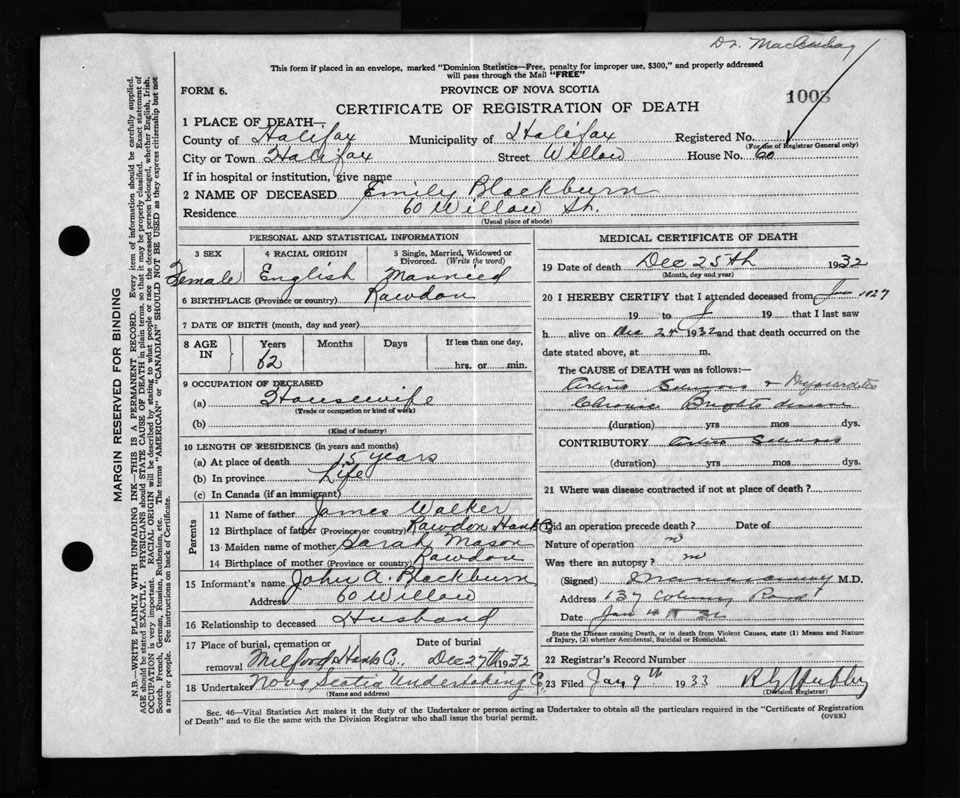 Dr.
This form if placed in an envelope, marked "Dominion Statistics—Free, penalty for improper use, $300," and properly addressed
will pass through the Mail "FREE"
FORM 6.
PROVINCE OF NOVA SCOTIA
1003
CERTIFICATE OF REGISTRATION OF DEATH
1 PLACE OF DEATH—
County of Halifax Municipality of Halifax Registered No.
(For use of Registrar General only)
City or Town Halifax Street Willow House No. 60
If in hospital or institution, give name
2 NAME OF DECEASED Emily Blackburn
Residence 60 Willow St.
(Usual place of abode)
PERSONAL AND STATISTICAL INFORMATION
3 SEX 4 RACIAL ORIGIN 5 Single, Married, Widowed or
Divorced. (Write the word)
Female English Married
6 BIRTHPLACE (Province or country) Rawdon
7 DATE OF BIRTH (month, day and year)
8 AGE IN Years Months Days If less than one day,
62 hrs. or min.
9 OCCUPATION OF DECEASED
(a) Housewife
(Trade or occupation or kind of work)
(b)
(Kind of industry)
10 LENGTH OF RESIDENCE (in years and months)
(a) At place of death 15 years
(b) In province Life
(c) In Canada (if an immigrant)
Parents
11 Name of father James Walker
12 Birthplace of father (Province or country) Rawdon Hants Co
13 Maiden name of mother Sarah Mason
14 Birthplace of mother (Province or country) Rawdon
15 Informant's name John A. Blackburn
Address 60 Willow
16 Relationship to deceased Husband
17 Place of burial, cremation or Date of burial
removal Milford Hants Co., Dec 27th 1932
18 Undertaker Nova Scotia Undertaking Co
(Name and address)
MEDICAL CERTIFICATE OF DEATH
19 Date of death Dec 25th 1932
(Month, day and year)
20 I HEREBY CERTIFY that I attended deceased from 1927
19 to 19 that I last saw
h alive on Dec 24 1932 and that death occurred on the
date stated above, at m.
The CAUSE of DEATH was as follows:—
& Myocarditis
Chronic Brights disease
(duration) yrs mos dys.
CONTRIBUTORY
(duration) yrs mos dys.
21 Where was disease contracted if not at place of death?
Did an operation precede death? Date of
Nature of operation no
Was there an autopsy? no
(Signed) M.D.
Address 137
Date Jan
State the Disease causing Death, or in death from Violent Causes, state (1) Means and Nature
of Injury, (2) whether Accidental, Suicidal or Homicidal.
22 Registrar's Record Number
23 Filed Jan 9th 1933
(Division Registrar)
Sec. 46—Vital Statistics Act makes it the duty of the Undertaker or person acting as Undertaker to obtain all the particulars required in the "Certificate of Registration
of Death" and to file the same with the Division Registrar who shall issue the burial permit.
(OVER)
MARGIN RESERVED FOR BINDING
N.B.—WRITE PLAINLY WITH UNFADING INK—THIS IS A PERMANENT RECORD. Every item of information should be carefully supplied.
AGE should be stated EXACTLY. PHYSICIANS should STATE CAUSE OF DEATH in plain terms, so that it may be properly classified. Exact statement of
OCCUPATION is very important. RACIAL ORIGIN will be described by stating to what people or race the deceased person belonged, whether English, Irish,
Scotch, French, German, Russian, Ruthenian, etc. The terms "AMERICAN" or "CANADIAN" SHOULD NOT BE USED as they express citizenship but not
a race or people. See instructions on back of Certificate.